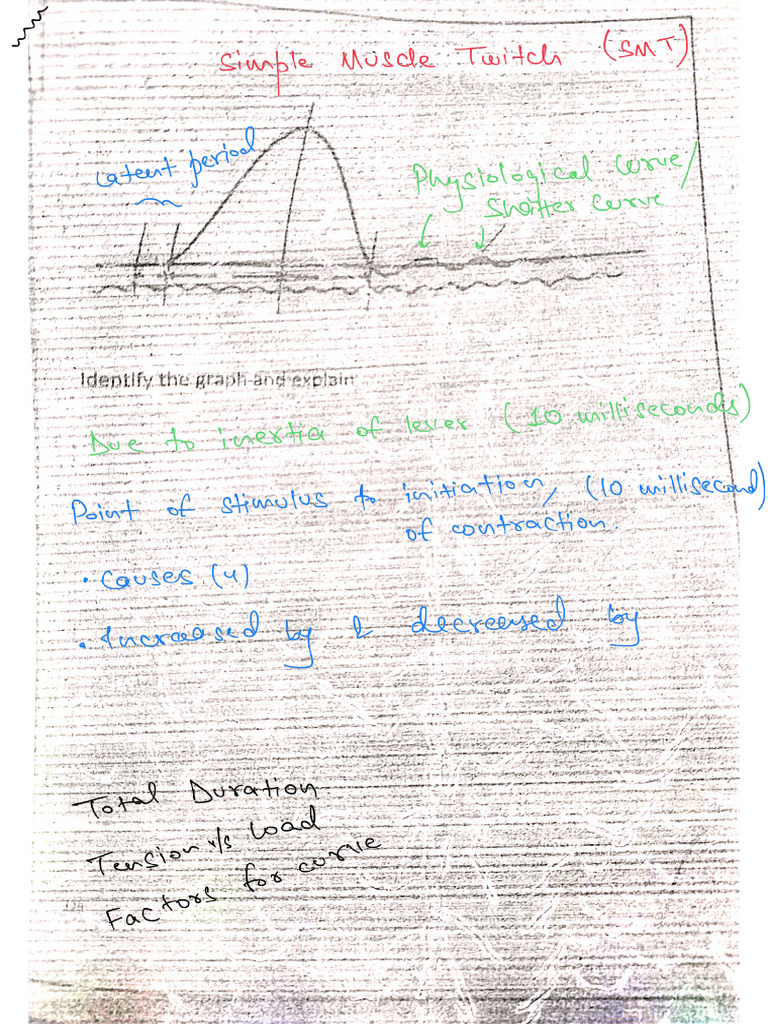 Simple Muscle Twitch (SMT)
Latent period
Physiological curve/
Shatter curve
Identify the graph and explain
Due to inertia of lever (10 milliseconds)
Point of stimulus to initiation, (10 millisecond)
of contraction.
• Causes (4)
• Increased by & decreased by
Total Duration
Tension v/s Load
Factors for curve